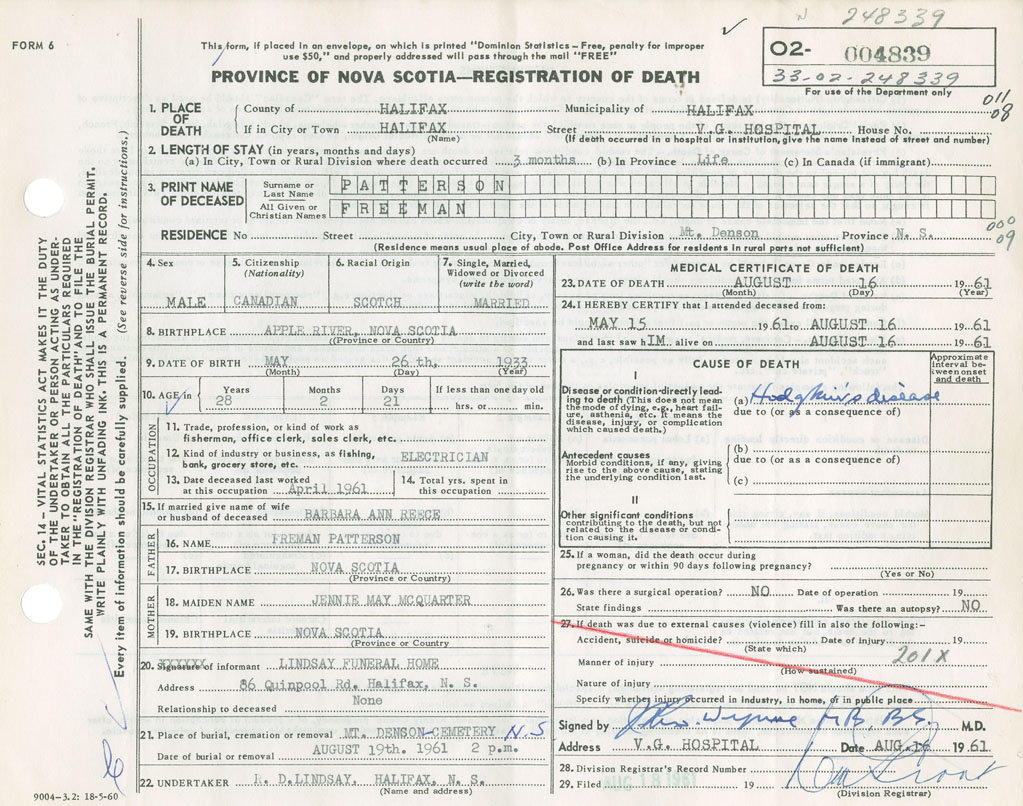 N 248339
FORM 6
This form, if placed in an envelope, on which is printed "Dominion Statistics – Free, penalty for improper
use $50," and properly addressed will pass through the mail "FREE"
PROVINCE OF NOVA SCOTIA—REGISTRATION OF DEATH
O2- 004839
33-02-248339
For use of the Department only
011
08
1. PLACE OF DEATH
County of HALIFAX Municipality of HALIFAX
If in City or Town HALIFAX Street V.G. HOSPITAL House No.
(Name) (If death occurred in a hospital or institution, give the name instead of street and number)
2. LENGTH OF STAY (in years, months and days)
(a) In City, Town or Rural Division where death occurred 3 months (b) In Province Life (c) In Canada (if immigrant)
3. PRINT NAME OF DECEASED
Surname or Last Name PATTERSON
All Given or Christian Names FREEMAN
RESIDENCE No Street City, Town or Rural Division Mt. Denson Province N. S.
000
09
(Residence means usual place of abode. Post Office Address for residents in rural parts not sufficient)
4. Sex MALE
5. Citizenship (Nationality) CANADIAN
6. Racial Origin SCOTCH
7. Single, Married, Widowed or Divorced (write the word) MARRIED
8. BIRTHPLACE APPLE RIVER, NOVA SCOTIA
((Province or Country)
9. DATE OF BIRTH MAY 26 th, 1933
(Month) (Day) (Year)
10. AGE in Years 28 Months 2 Days 21 If less than one day old hrs. or min.
OCCUPATION
11. Trade, profession, or kind of work as
fisherman, office clerk, sales clerk, etc.
12. Kind of industry or business, as fishing,
bank, grocery store, etc. ELECTRICIAN
13. Date deceased last worked
at this occupation April 1961
14. Total yrs. spent in
this occupation
15. If married give name of wife
or husband of deceased BARBARA ANN REECE
FATHER
16. NAME FREMAN PATTERSON
17. BIRTHPLACE NOVA SCOTIA
(Province or Country)
MOTHER
18. MAIDEN NAME JENNIE MAY MCQUARTER
19. BIRTHPLACE NOVA SCOTIA
(Province or Country
20. Signature of informant LINDSAY FUNERAL HOME
Address 86 Quinpool Rd. Halifax, N. S.
Relationship to deceased None
21. Place of burial, cremation or removal MT. DENSON CEMETERY N.S
Date of burial or removal AUGUST 19th. 1961 2 p.m.
22. UNDERTAKER D.LINDSAY, HALIFAX, N. S.
(Name and address)
MEDICAL CERTIFICATE OF DEATH
23. DATE OF DEATH AUGUST 16 1961
(Month) (Day) (Year)
24. I HEREBY CERTIFY that I attended deceased from:
MAY 15 1961 to AUGUST 16 1961
and last saw hIM alive on AUGUST 16 1961
CAUSE OF DEATH
Approximate interval between onset and death
I
Disease or condition directly leading
to death (This does not mean
the mode of dying, e.g., heart failure,
asthenia, etc. It means the
disease, injury, or complication
which caused death.)
(a) Hodgkin's disease
due to (or as a consequence of)
Antecedent causes
Morbid conditions, if any, giving
rise to the above cause, stating
the underlying condition last.
(b)
due to (or as a consequence of)
(c)
II
Other significant conditions
contributing to the death, but not
related to the disease or condition
causing it.
25. If a woman, did the death occur during
pregnancy or within 90 days following pregnancy?
(Yes or No)
26. Was there a surgical operation? NO Date of operation 19
State findings Was there an autopsy? NO
27. If death was due to external causes (violence) fill in also the following:-
Accident, suicide or homicide? Date of injury 19
(State which)
201X
Manner of injury
(How sustained)
Nature of injury
Specify whether injury occurred in Industry, in home, or in public place
Signed by Wynne M.B. B.S. M.D.
Address V.G. HOSPITAL Date AUG. 16 1961
28. Division Registrar's Record Number
29. Filed AUG 18 1961 19
(Division Registrar)
SEC. 14 – VITAL STATISTICS ACT MAKES IT THE DUTY
OF THE UNDERTAKER OR PERSON ACTING AS UNDERTAKER
TO OBTAIN ALL THE PARTICULARS REQUIRED
IN THE "REGISTRATION OF DEATH" AND TO FILE THE
SAME WITH THE DIVISION REGISTRAR WHO SHALL ISSUE THE BURIAL PERMIT.
WRITE PLAINLY WITH UNFADING INK. THIS IS A PERMANENT RECORD.
Every item of information should be carefully supplied. (See reverse side for instructions.)
9004-3.2: 18-5-60